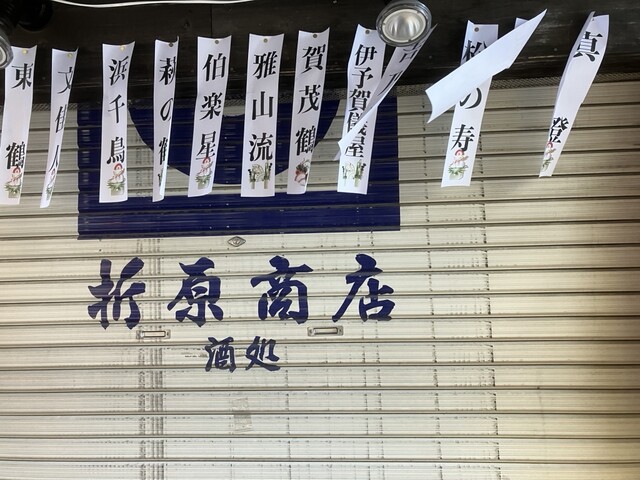 真澄
松の寿
伊予賀儀屋
賀茂鶴
雅山流
伯楽星
萩の鶴
浜千鳥
文佳人
東鶴
折原商店
酒処